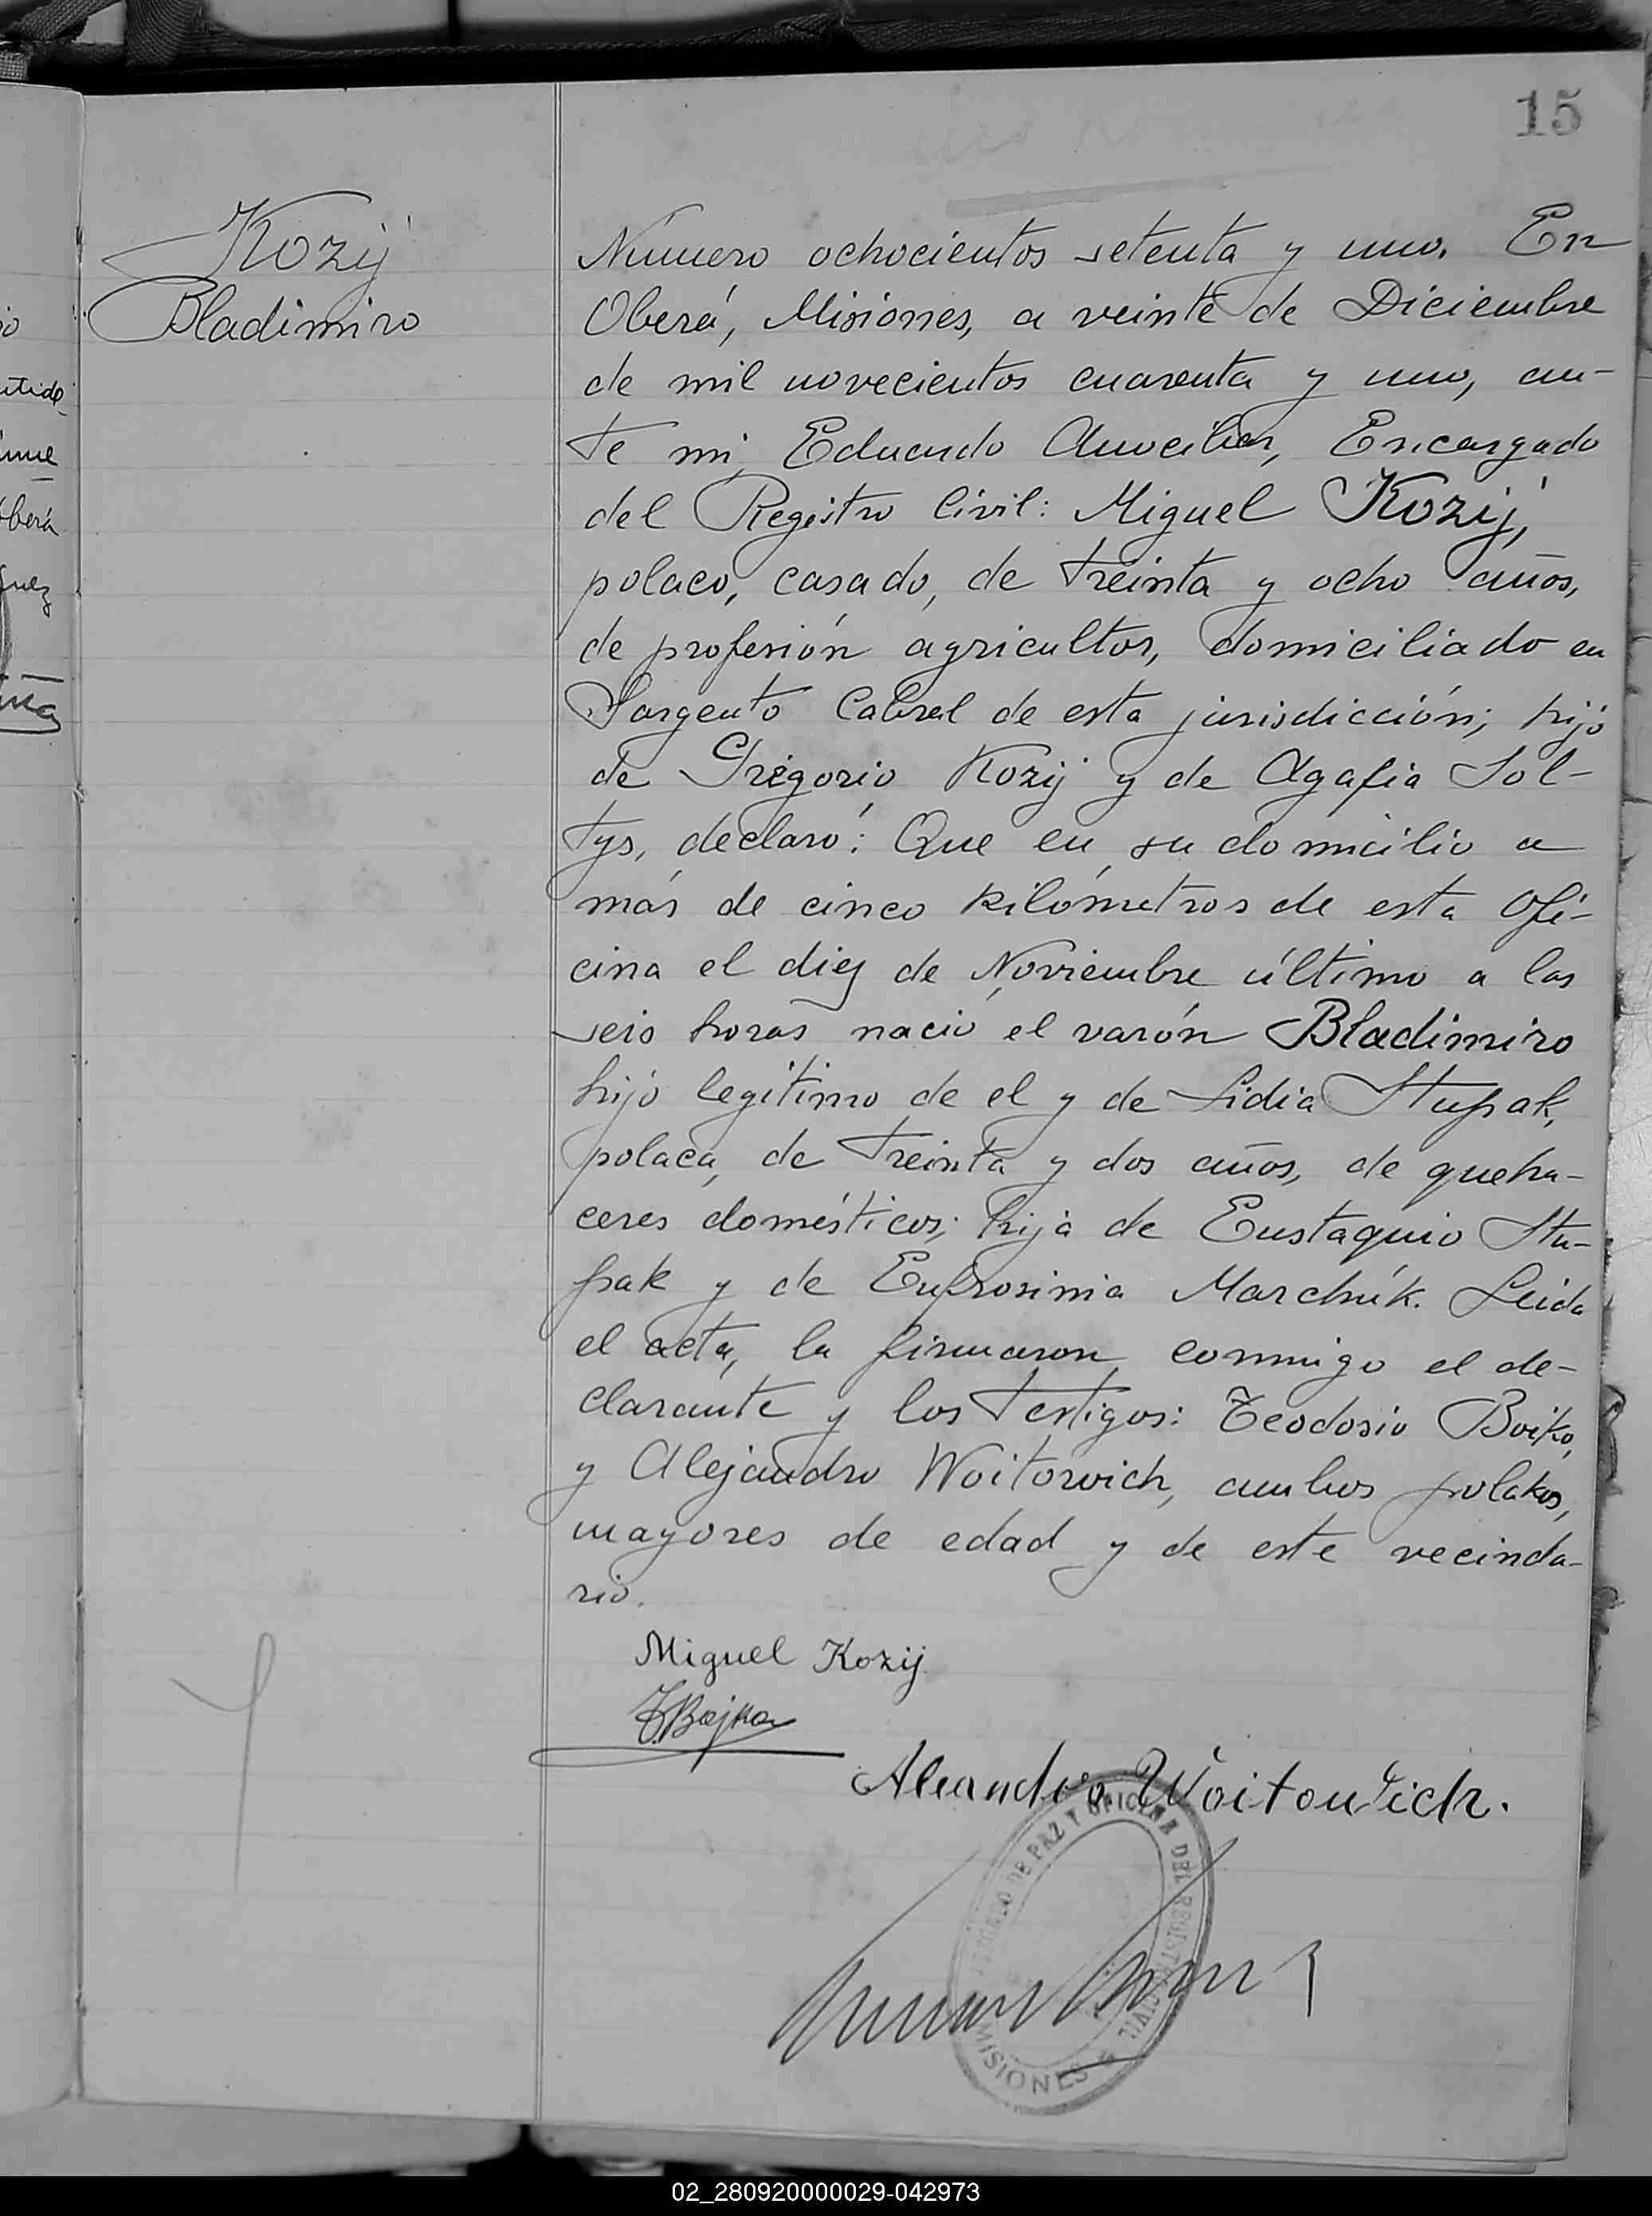 15
Kozij
Bladimiro
Número ochocientos setenta y uno. En
Oberá, Misiones, a veinte de Diciembre
de mil novecientos cuarenta y uno, an-
te mi, Eduardo Encargado
del Registro Civil: Miguel Kozij,
polaco, casado, de treinta y ocho años,
de profesión agricultor, domiciliado en
Sargento Cabral de esta jurisdicción; hijo
de Gregorio Kozij y de Agafia Sol-
tys, declaró: Que en su domicilio a
más de cinco kilómetros de esta ofi-
cina el diez de Noviembre último a las
seis horas nació el varón Bladimiro
hijo legítimo de el y de Lidia Stupak,
polaca, de treinta y dos años, de queha-
ceres domésticos; hija de Eustaquio Stu-
pak y de Eufrosinia Marchúk. Leida
el acta, la firmaron conmigo el de-
clarante y los testigos: Teodosio Boiko,
y Alejandro Woitowich, ambos polakos,
mayores de edad y de este vecinda-
rio.
Miguel Kozij
Aleandro Woitowich.
DE PAZ Y OFICINA DEL REGISTRO CIVIL
MISIONES
02_280920000029-042973